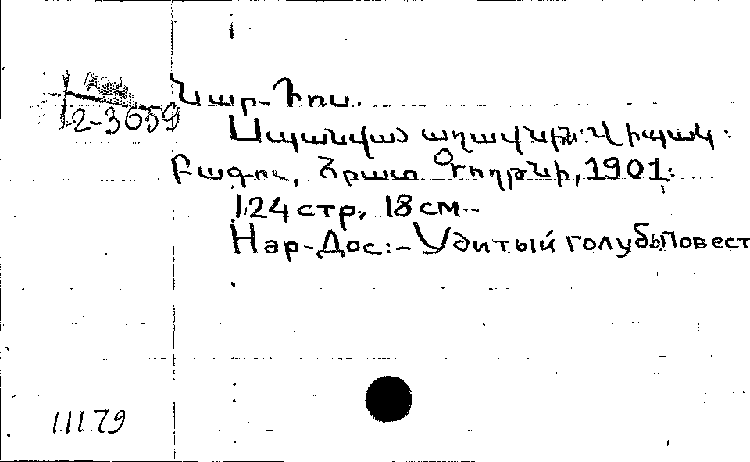 Նար-Դոս.
2-3659
Սպանված աղավնին: Վիպակ:
Բագու, Հրատ. Օ. Դուրյանի, 1901:
124 стр, 18 см.
Нар-Дос:- Убитый голубь Повест
111.79